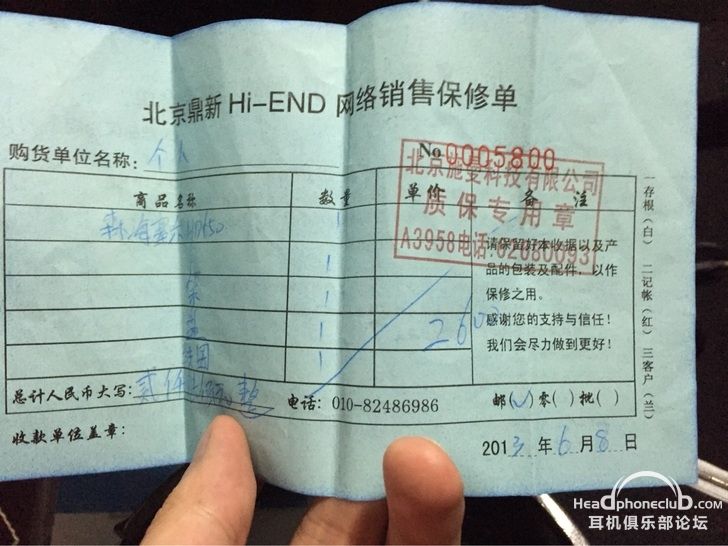 北京鼎新 Hi-END 网络销售保修单
购货单位名称： 个人
No 0005800
北京施曼科技有限公司
质保专用章
A3958电话:62680093
商品名称 数量 单价 备注
森海塞尔HD650 1
1
1
1
1
2600
请保留好本收据以及产
品的包装及配件，以作
保修之用。
感谢您的支持与信任！
我们会尽力做到更好！
一存根（白） 二记帐（红） 三客户（兰）
总计人民币大写: 贰仟 整
电话: 010-82486986
邮(√)零( )批( )
收款单位盖章:
2013 年 6 月 8 日
Headphoneclub.com
耳机俱乐部论坛